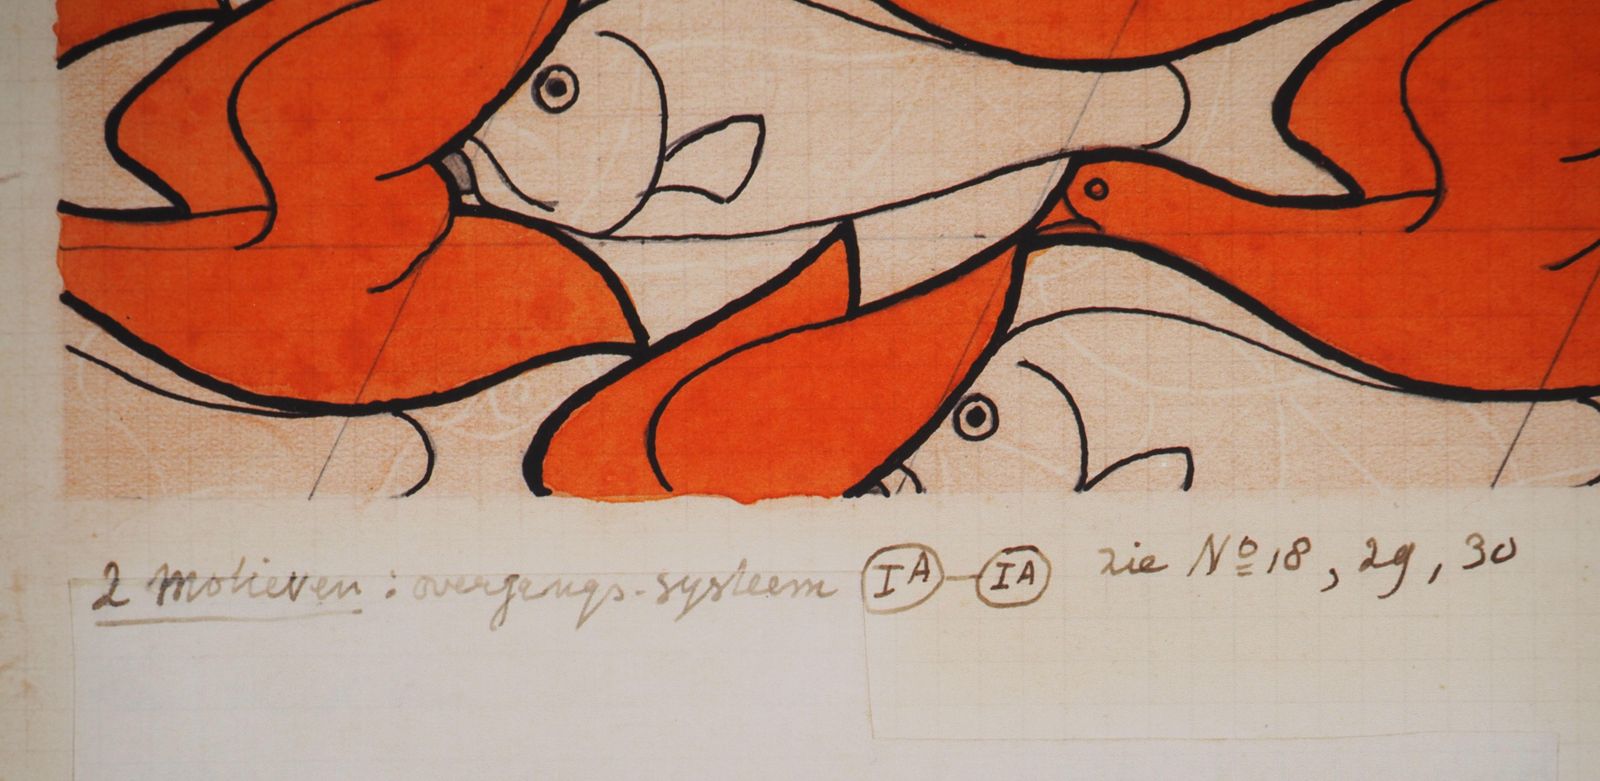 2 Motieven: overgangs-systeem IA-IA zie Nº 18, 29, 30